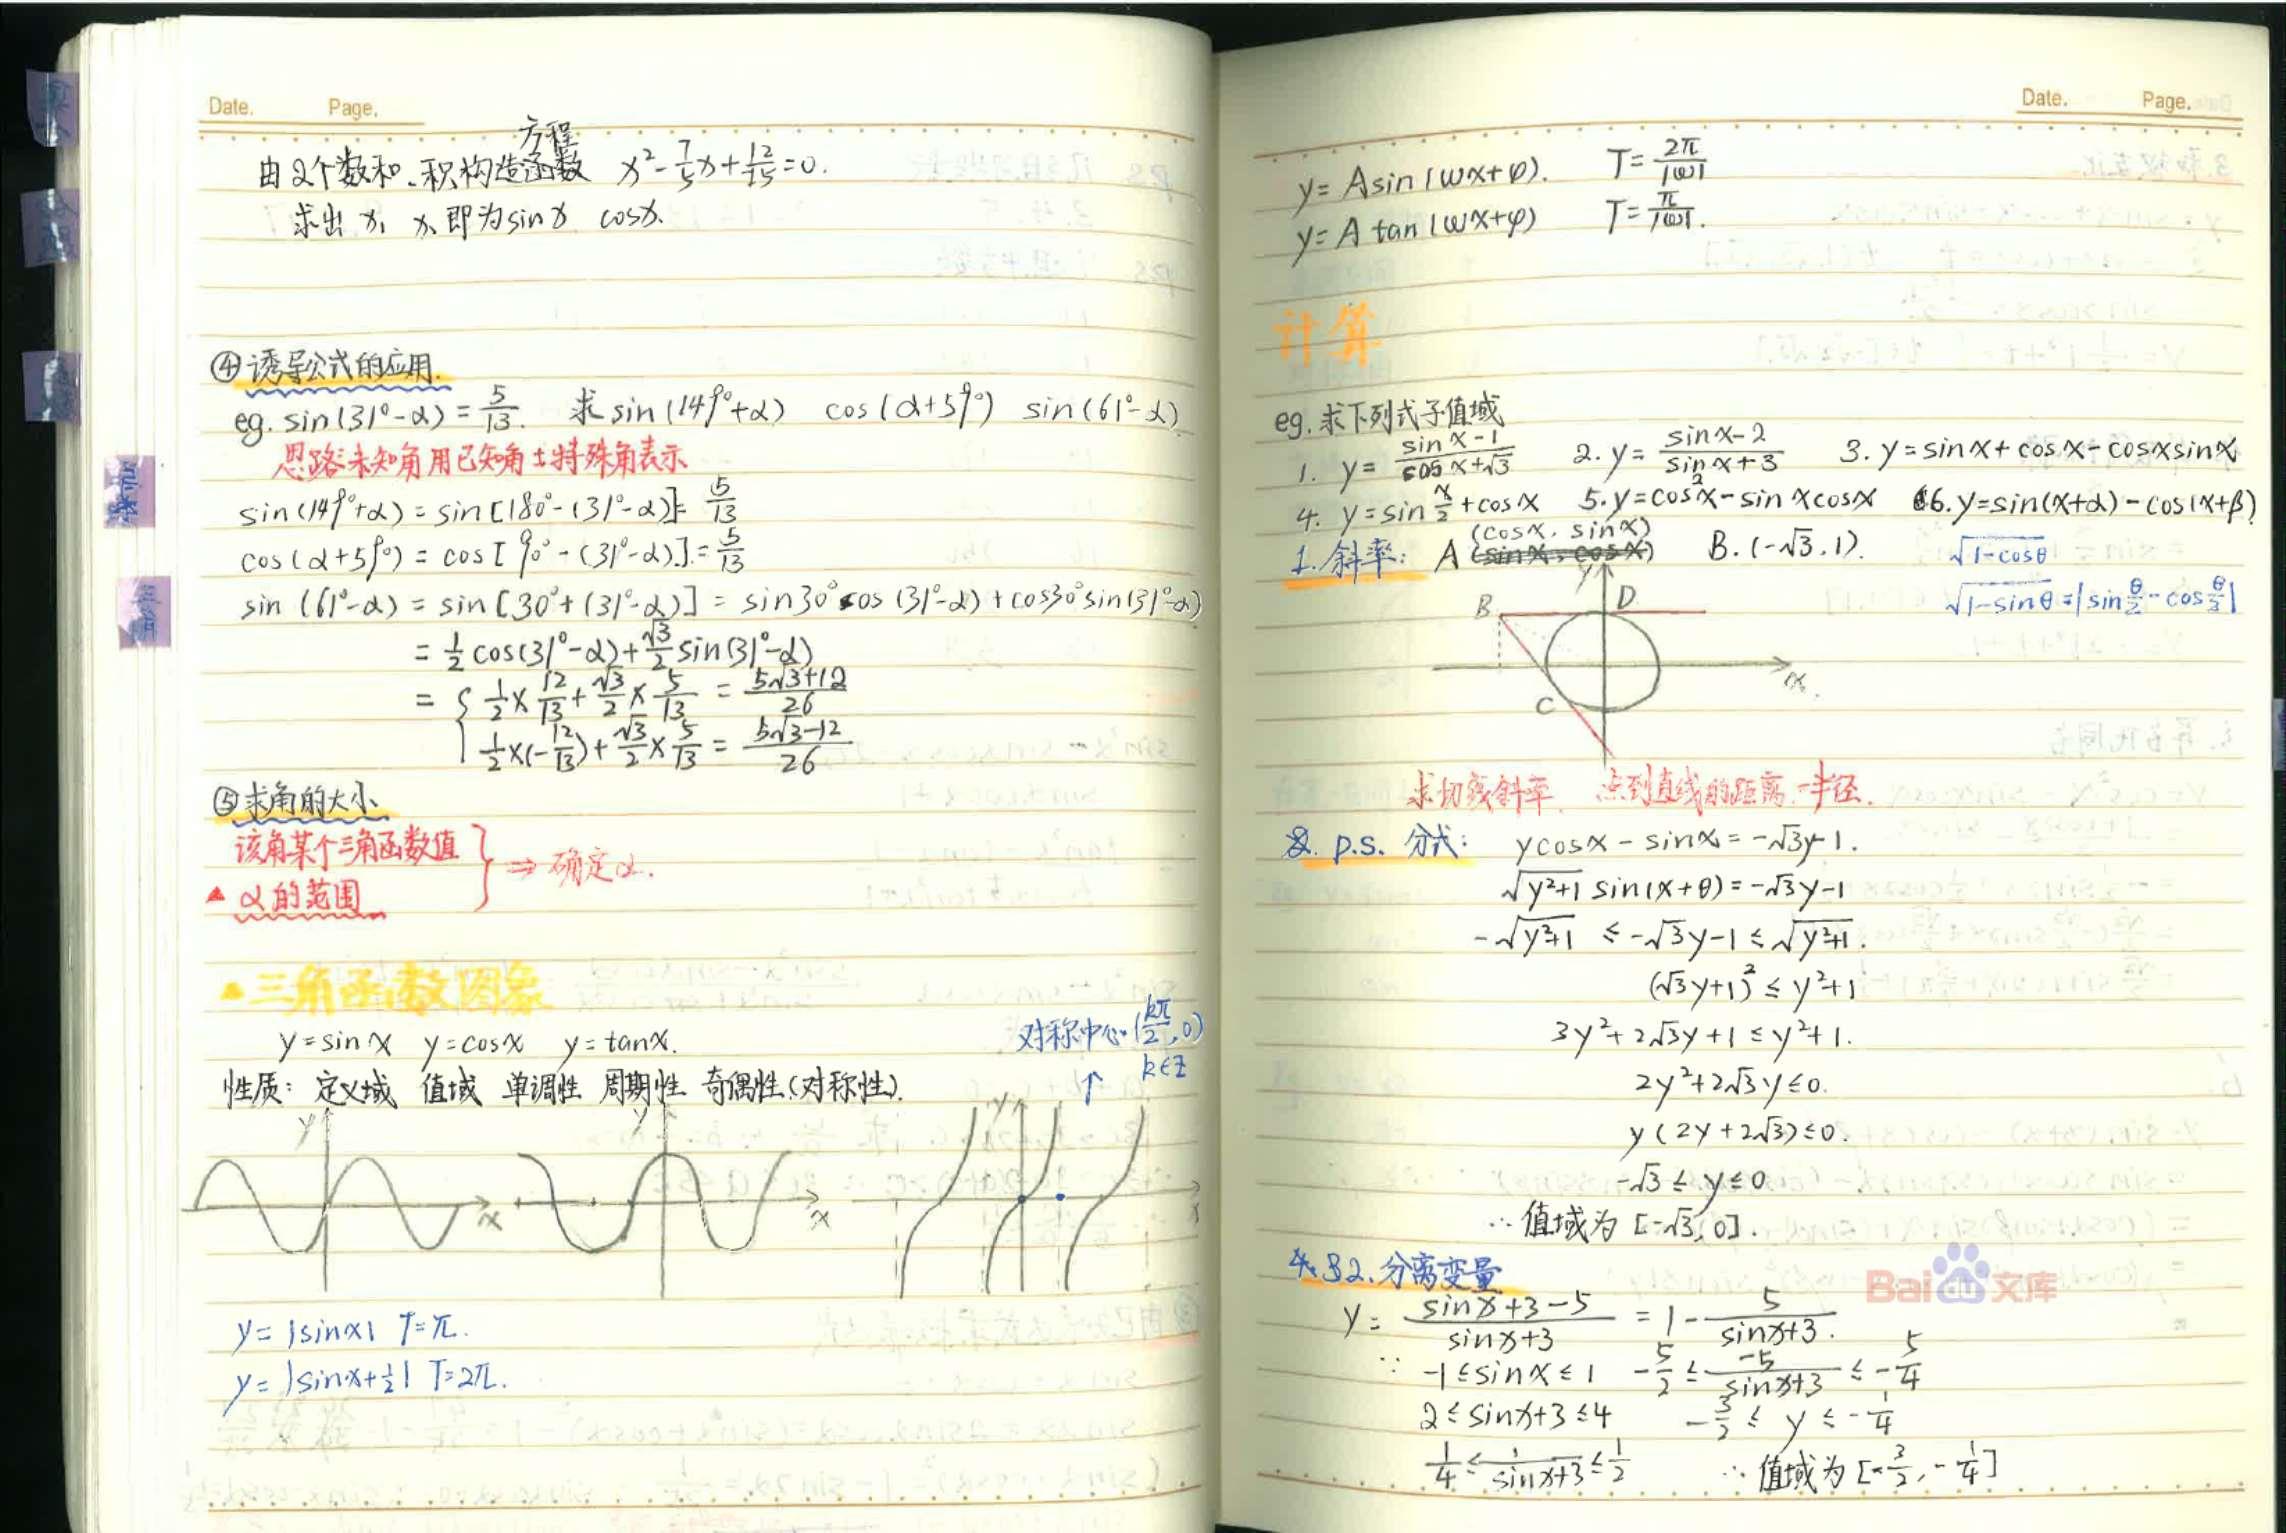 Date. Page.
方程
由2个数和、积构造函数 x²-7/5x+12/25=0.
求出 x₁ x₂ 即为sinx cosx.
④诱导公式的应用.
eg. sin(31°-α)=5/13. 求sin(149°+α) cos(α+59°) sin(61°-α)
思路:未知角用已知角±特殊角表示
sin(149°+α)=sin[180°-(31°-α)]=5/13
cos(α+59°)=cos[90°-(31°-α)]=5/13
sin(61°-α)=sin[30°+(31°-α)]=sin30°cos(31°-α)+cos30°sin(31°-α)
=1/2cos(31°-α)+√3/2sin(31°-α)
={1/2×12/13+√3/2×5/13=(5√3+12)/26
1/2×(-12/13)+√3/2×5/13=(5√3-12)/26
⑤求角的大小
该角某个三角函数值
▲ α的范围
} ⇒确定α.
▲三角函数图象
y=sinx y=cosx y=tanx.
对称中心(kπ/2,0)
k∈Z
↑
性质: 定义域 值域 单调性 周期性 奇偶性(对称性).
y x y x y x
y=|sinx| T=π.
y=|sinx+1/2| T=2π.
Date. Page.
y=Asin(ωx+φ). T=2π/|ω|
y=Atan(ωx+φ) T=π/|ω|.
计算
eg.求下列式子值域
1. y=(sinx-1)/(cosx+√3) 2. y=(sinx-2)/(sinx+3) 3. y=sinx+cosx-cosxsinx
4. y=sin x/2+cosx 5. y=cos²x-sinxcosx 6. y=sin(x+α)-cos(x+β)
(cosx, sinx)
1.斜率: A (sinx, cosx) B.(-√3,1).
√(1-cosθ)
√(1-sinθ)=|sin θ/2-cos θ/2|
y
B D
x
C
求切线斜率. 点到直线的距离=半径.
p.s. 分式: ycosx-sinx=-√3y-1.
√(y²+1) sin(x+θ)=-√3y-1
-√(y²+1) ≤-√3y-1≤√(y²+1).
(√3y+1)²≤y²+1
3y²+2√3y+1≤y²+1.
2y²+2√3y≤0.
y(2y+2√3)≤0.
-√3≤y≤0
∴值域为[-√3,0].
2.分离变量
y=(sinx+3-5)/(sinx+3)=1-5/(sinx+3).
∵ -1≤sinx≤1 -5/2≤-5/(sinx+3)≤-5/4
2≤sinx+3≤4 -3/2≤y≤-1/4
1/4≤1/(sinx+3)≤1/2 ∴值域为[-3/2,-1/4]
Bai du 文库